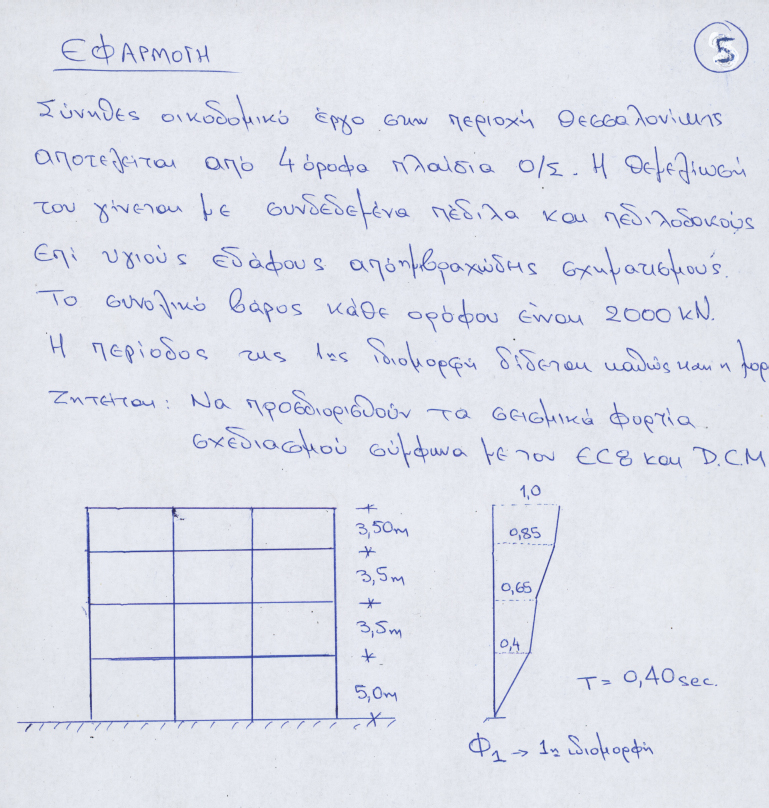 ΕΦΑΡΜΟΓΗ
5
Σύνηθες οικοδομικό έργο στην περιοχή Θεσσαλονίκης
αποτελείται από 4όροφα πλαίσια Ο/Σ. Η θεμελίωσή
του γίνεται με συνδεδεμένα πέδιλα και πεδιλοδοκούς
επί υγιούς εδάφους από ημιβραχώδης σχηματισμούς.
Το συνολικό βάρος κάθε ορόφου είναι 2000 kN.
Η περίοδος της 1ης ιδιομορφή δίδεται καθώς και η μορ
Ζητείται: Να προσδιορισθούν τα σεισμικά φορτία
σχεδιασμού σύμφωνα με τον EC8 και D.C.M
1,0
3,50m
0,85
3,5m
0,65
3,5m
0,4
5,0m
T= 0,40 sec.
Φ1 → 1η ιδιομορφή